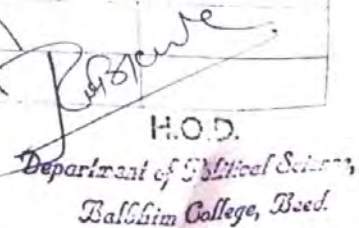 H.O.D.
Department of Political Science,
Balbhim College, Beed.